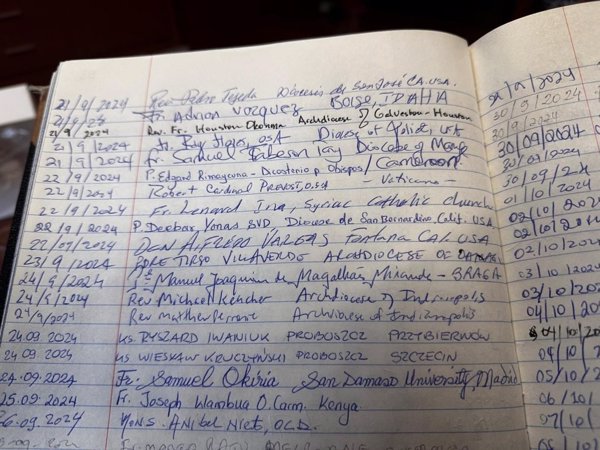 21/9/2024 Rev. Pedro Tejeda Diocesis de San José CA. USA.
21/9/24 Fr. Adrian Vazquez BOISE, IDAHO
21/9/2024 Rev. Fr. Houston Okonma Archdiocese of Galveston-Houston
21/9/2024 Fr. OSA Diocese of USA
21/9/2024 Fr. Samuel Diocese of Cameroon
22/9/2024 P. Edgard Rimaycuna - Dicasterio p. Obispos/
22/9/2024 Robert Cardinal PREVOST, O.S.A - Vaticano
22/9/2024 Fr. Lenard Ina, Syriac Catholic church
22/9/2024 P. Deebar, Yonas SVD Diocese de San Bernardino, Calif. U.S.A.
22/09/2024 DON ALFREDO VARGAS Fontana CAL. USA
23/9/2024 TIRSO VILLAVERDE ARCHDIOCESE OF
24/9/2024 Manuel Joaquim de Magalhães Miranda - BRAGA
24/9/2024 Rev. Michael Keucher Archdiocese of Indianapolis
24/9/2024 Rev Matthew Perronie Archdiocese of Indianapolis
24.09.2024 KS. RYSZARD IWANIUK PROBOSZCZ PRZYBIERNÓW
24.09.2024 KS WIESŁAW KRUCZYŃSKI PROBOSZCZ SZCZECIN
24.09.2024 Fr. Samuel Okiria San Damaso University, Madrid
25.09.2024 Fr. Joseph Wambua O.Carm. Kenya
26.09.2024 MONS. ANIBAL NIETO, OCD.
30/9/2024
30/9/2024
30/09/2024
30/09/2024
30/09/24
01/10/2024
02/10/2024
02/10/2024
02/10/2024
03/10/2024
03/10/2024
04/10/2024
04/10/20
04/10/2
05/10/2
06/10
07/10